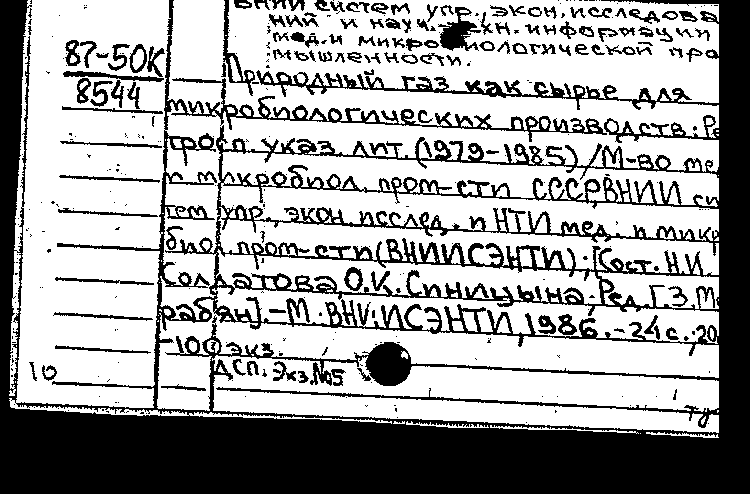 ВНИИ систем упр., экон. исследова
ний и науч.-техн. информации
мед. и микробиологической про
мышленности.
87-50К
8544
Природный газ как сырье для
микробиологических производств: Ре
троспл. указ. лит. (1979-1985) /М-во ме
и микробиол. пром-сти СССР, ВНИИ си
тем упр., экон. исслед. и НТИ мед. и микр
биол. пром-сти (ВНИИСЭНТИ); [Сост. Н.И.
Солдатова, О.К. Синицына; Ред. Г.З. М
рабян]. -М.: ВНИИСЭНТИ, 1986. -24 с.; 20
-100 экз.
ДСП. Экз. №5
10